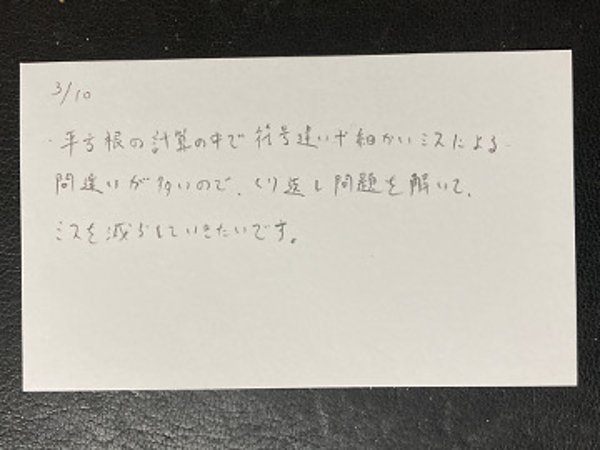 3/10
・平方根の計算の中で符号違いや細かいミスによる
間違いが多いので、くり返し問題を解いて、
ミスを減らしていきたいです。